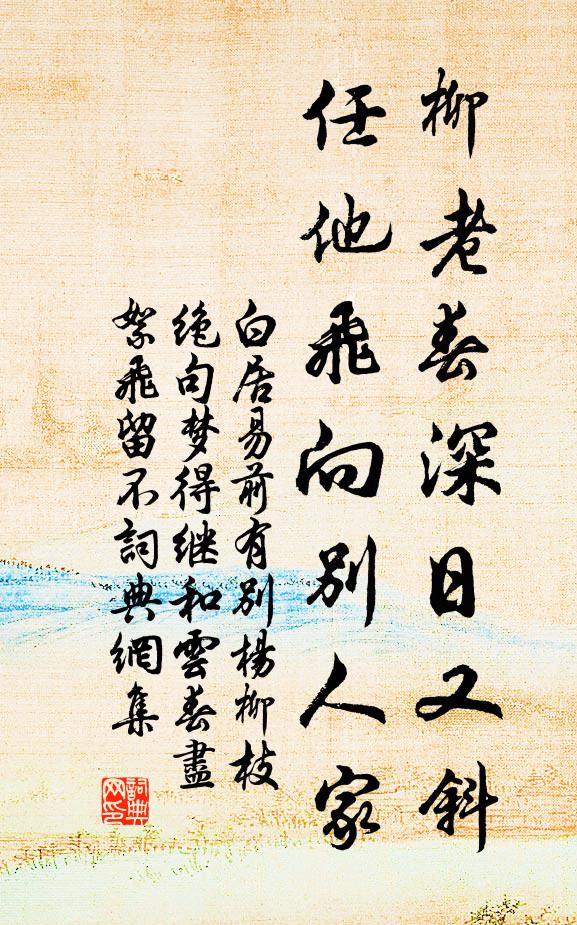 柳老春深日又斜
任他飛向別人家
白居易前有別楊柳枝
绝句梦得继和雲春盡
絮飛留不詞典網集
詞典
网印